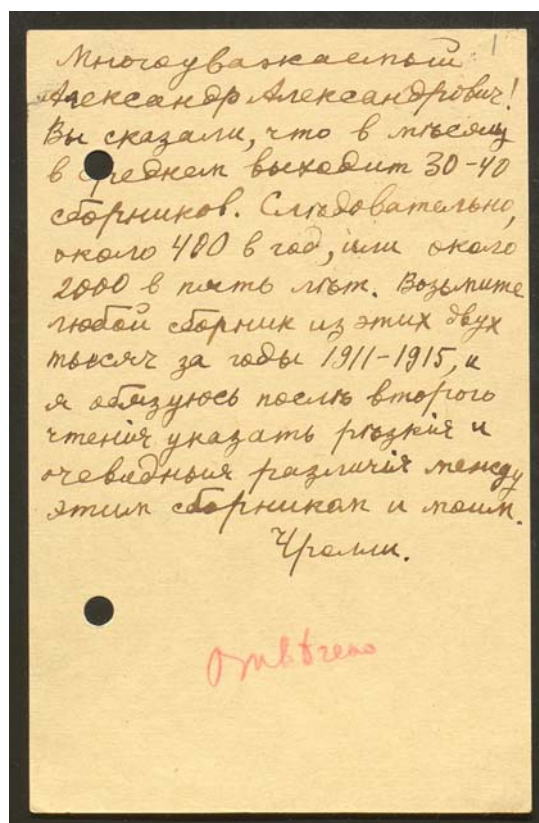 Многоуважаемый 1
Александр Александрович!
Вы сказали, что в мѣсяц
в среднем выходит 30-40
сборников. Слѣдовательно,
около 400 в год, или около
2000 в пять лѣт. Возьмите
любой сборник из этих двух
тысяч за годы 1911-1915, и
я обязуюсь послѣ второго
чтенія указать рѣзкія и
очевидныя различія между
этим сборником и моим.
Чролли.
Отвѣчено